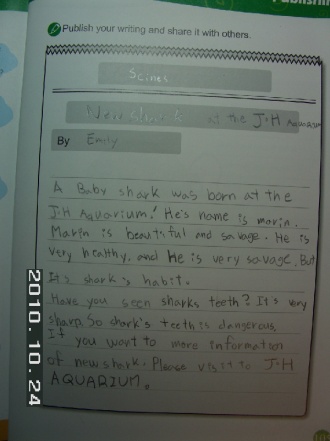 Publish your writing and share it with others.
Scines
New Shark at the J·H Aquarium
By Emily
A Baby shark was born at the
J·H Aquarium! He's name is marin.
Marin is beautiful and savage. He is
very healthy, and He is very savage. But
It's shark's habit.
Have you seen sharks teeth? It's very
sharp. So shark's teeth is dangerous.
If you want to more information
of new shark. Please visit to J·H
AQUARIUM.
2010.10.24